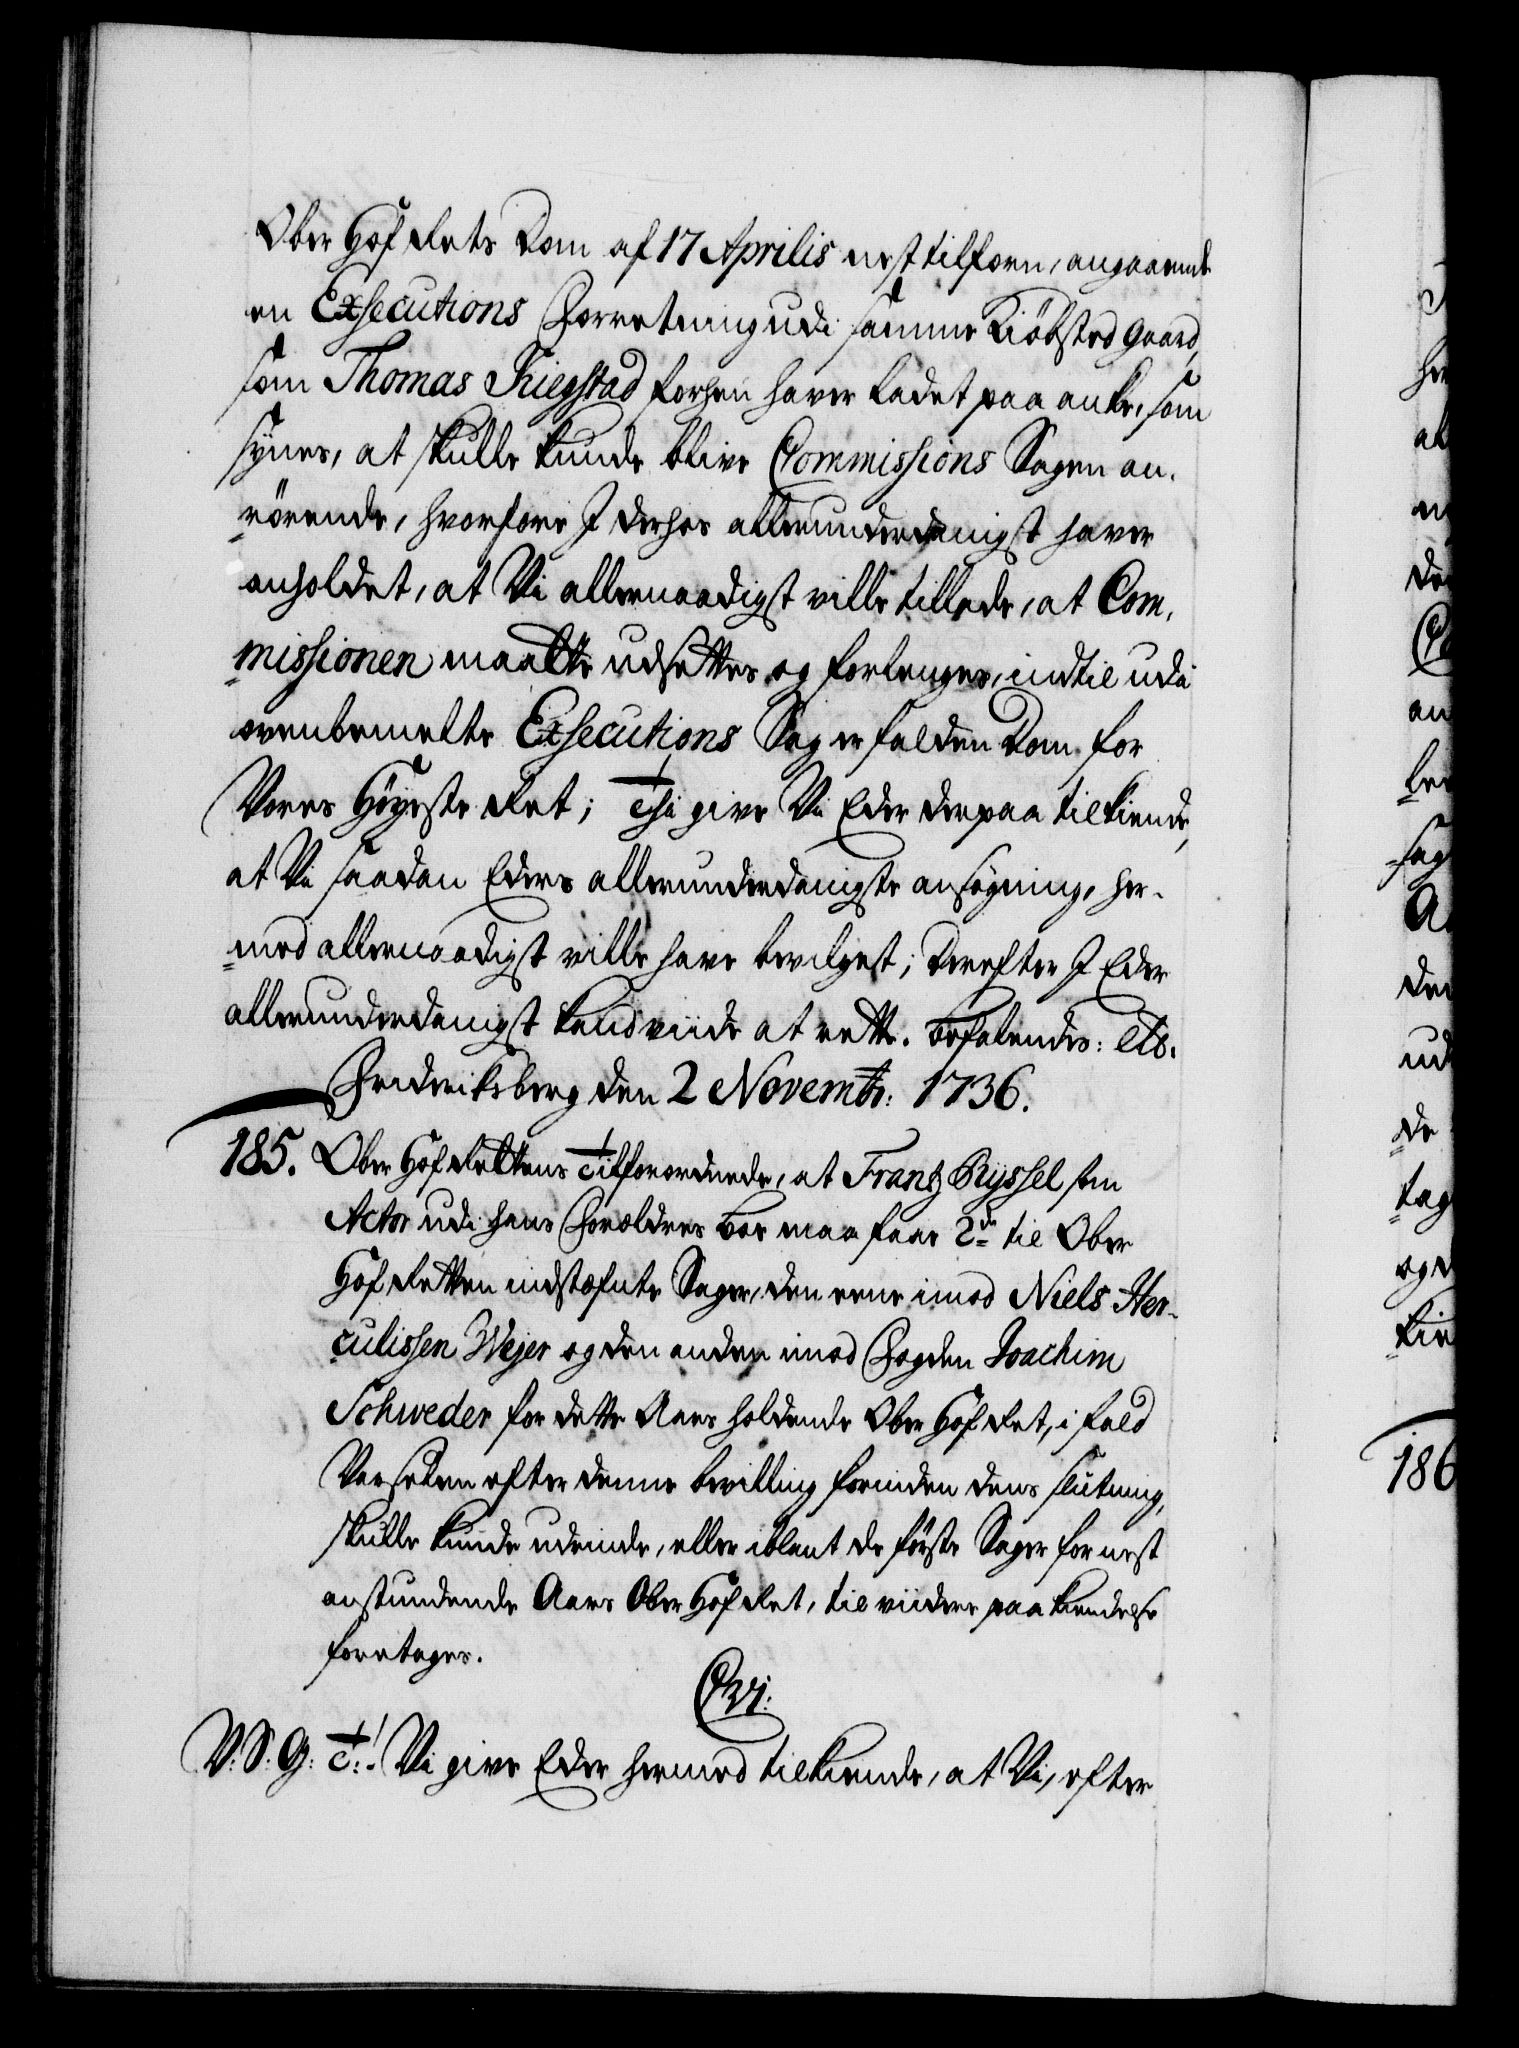 Ober Hof Rets Dom af 17 Aprilis nest tilforn, angaaende
en Exsecutions Forretning udi samme Kiöbsted Gaard,
som Thomas Riegstad forhen haver ladet paa anke, som
synes, at skulle kunde blive Commissions Sagen an-
rörende, hvorfore I derhos allerunderdanigst haver
anholdet, at Vi allernaadigst ville tillade, at Com-
missionen maatte udsettes og forlenges, indtil udi
ovenbemelte Exsecutions Sag er falden Dom for
Vores Höyeste Ret; Thi give Vi Eder derpaa tilkiende,
at Vi saadan Eders allerunderdanigste ansögning, her-
med allernaadigst ville have bevilget; Derefter I Eder
allerunderdanigst kand viide at rette. Befalendes: etc.
Friderichsberg den 2 Novembr: 1736.
185. Ober Hof Rettens Tilforordnede, at Frantz Ryssel som
Actor udi hans Forældres Boe maa faae 2de til Ober
Hof Retten indstæfnte Sager, den eene imod Niels Her-
culissen Wejer og den anden imod Fogden Joachim
Schweder for dette Aars holdende Ober Hof Ret, i fald
Varselen efter denne bevilling forinden dens slutning,
skulle kunde udrinde, eller iblant de förste Sager for nest
anstundende Aars Ober Hof Ret, til viidere paakiendelse
foretages.
C. VI:
V: S: G: T:. Vi give Eder hermed tilkiende, at Vi, efter
186